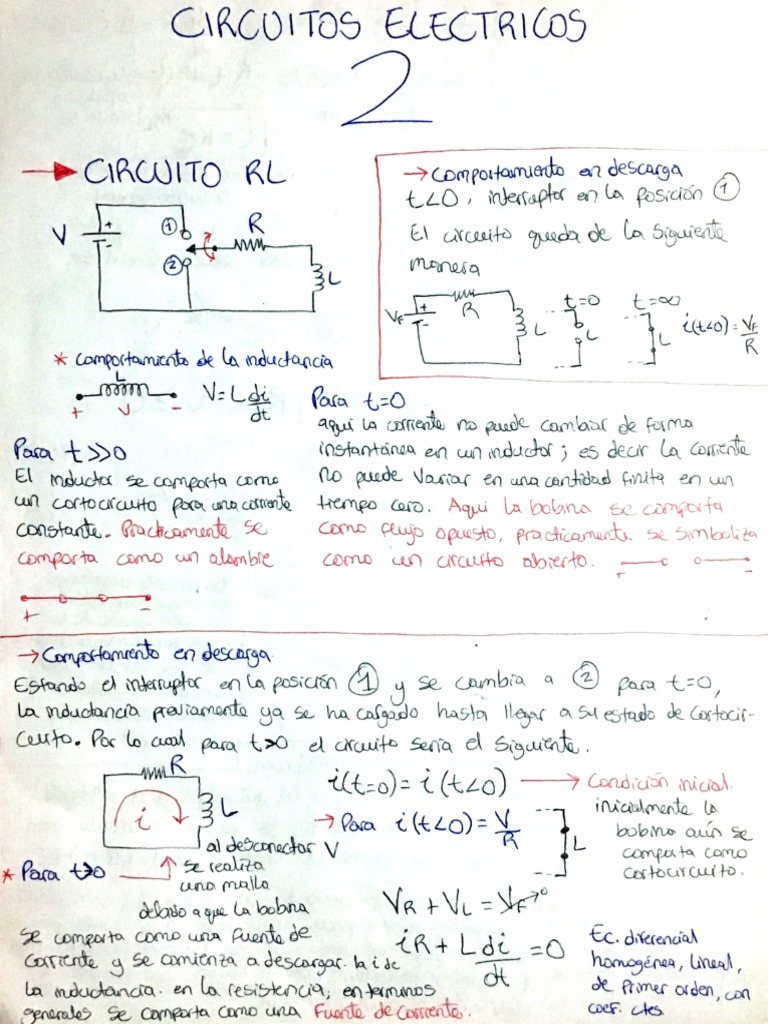 CIRCUITOS ELECTRICOS
2
→ CIRCUITO RL
V + - ① ② R L
→ Comportamiento en descarga
t<0, interruptor en la posición ①
El circuito queda de la siguiente
manera
VF + - R L t=0 L t=∞ L i(t<0) = VF/R
* Comportamiento de la inductancia
L + V - V = L di/dt
Para t>>0
El inductor se comporta como
un cortocircuito para una corriente
constante. Practicamente se
comporta como un alambre
+ -
Para t=0
aqui la corriente no puede cambiar de forma
instantánea en un inductor; es decir la corriente
no puede variar en una cantidad finita en un
tiempo cero. Aqui la bobina se comporta
como flujo opuesto, practicamente se simboliza
como un circuito abierto. + -
→ Comportamiento en descarga
Estando el interruptor en la posición ① y se cambia a ② para t=0,
la inductancia previamente ya se ha cargado hasta llegar a su estado de cortocir-
cuito. Por lo cual para t>0 el circuito sería el siguiente.
R L i
i(t=0) = i(t<0) → Condición inicial.
→ Para i(t<0) = V/R
L
inicialmente la
bobina aún se
comporta como
cortocircuito.
* Para t>0 →
al desconectar V
se realiza
una malla
debido a que la bobina
se comporta como una fuente de
corriente y se comienza a descargar. la i de
la inductancia. en la resistencia; en terminos
generales se comporta como una Fuente de Corriente.
VR + VL = VF→0
iR + L di/dt = 0
Ec. diferencial
homogénea, lineal,
de Primer orden, con
coef. ctes.